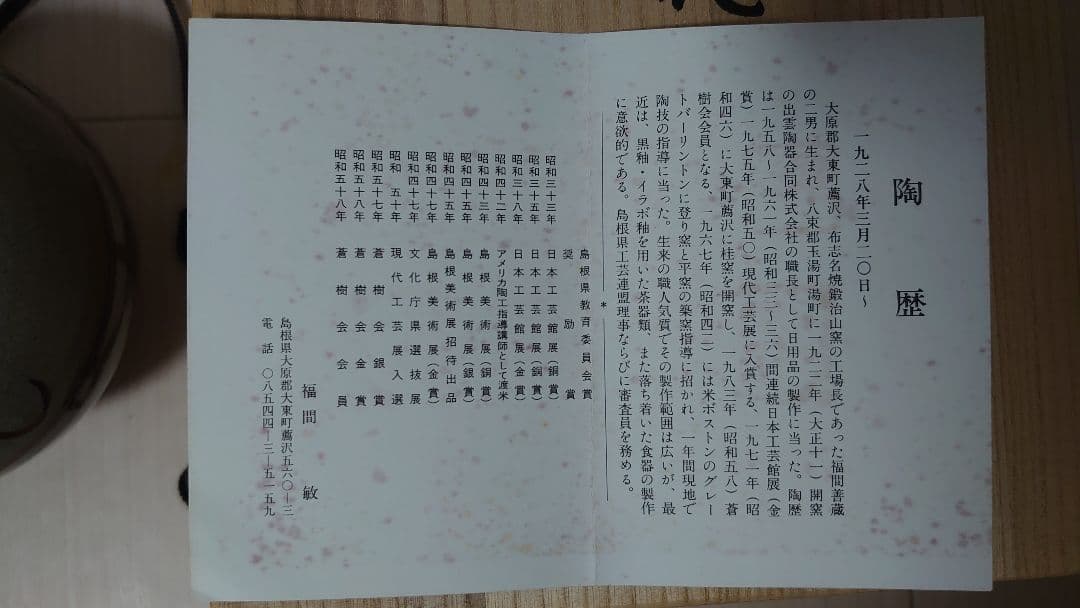 陶歴
一九二八年三月二〇日～
大原郡大東町薦沢、布志名焼鍛冶山窯の工場長であった福間善蔵
の二男に生まれ、八束郡玉湯町湯町に一九二二年(大正十一)開窯
の出雲陶器合同株式会社の職長として日用品の製作に当った。陶歴
は一九五八～一九六一年(昭和三三～三六)間連続日本工芸館展(金
賞)一九七五年(昭和五〇)現代工芸展に入賞する、一九七一年(昭
和四六)に大東町薦沢に桂窯を開窯し、一九八三年(昭和五八)蒼
樹会会員となる、一九六七年(昭和四二)には米ボストンのグレー
トバーリントンに登り窯と平窯の築窯指導に招かれ、一年間現地で
陶技の指導に当った。生来の職人気質でその製作範囲は広いが、最
近は、黒釉・イラボ釉を用いた茶器類、また落ち着いた食器の製作
に意欲的である。島根県工芸連盟理事ならびに審査員を務める。
*
島根県教育委員会賞
奨励賞
昭和三十三年 日本工芸館展(銅賞)
昭和三十五年 日本工芸館展(銅賞)
昭和三十八年 日本工芸館展(金賞)
昭和四十二年 アメリカ陶工指導講師として渡米
昭和四十三年 島根美術展(銅賞)
昭和四十五年 島根美術展(銀賞)
昭和四十五年 島根美術展招待出品
昭和四十七年 島根美術展(金賞)
昭和四十七年 文化庁県選抜展
昭和五十年 現代工芸展入選
昭和五十七年 蒼樹会銀賞
昭和五十八年 蒼樹会金賞
昭和五十八年 蒼樹会会員
福間敏
島根県大原郡大東町薦沢五六〇―三
電話 〇八五四四―三―五一五九